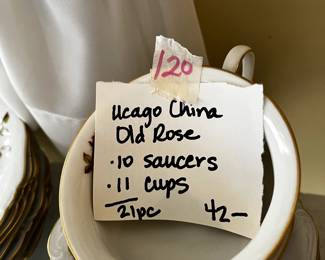 120
Ucago China
Old Rose
·10 saucers
·11 cups
21pc 42—